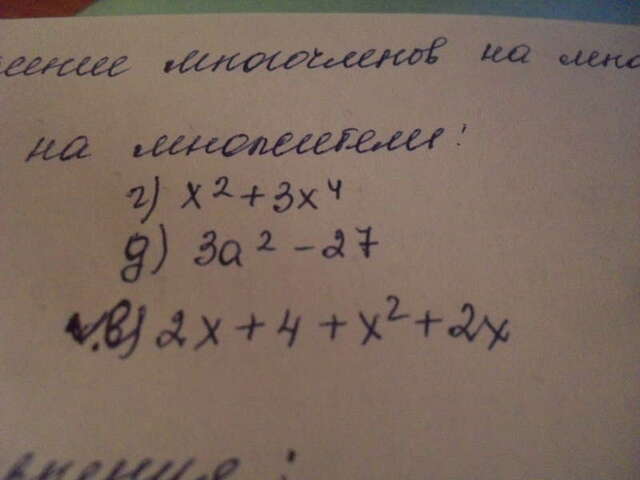 многочленов на
на множители:
г) x² + 3x⁴
д) 3a² - 27
в) 2x + 4 + x² + 2x